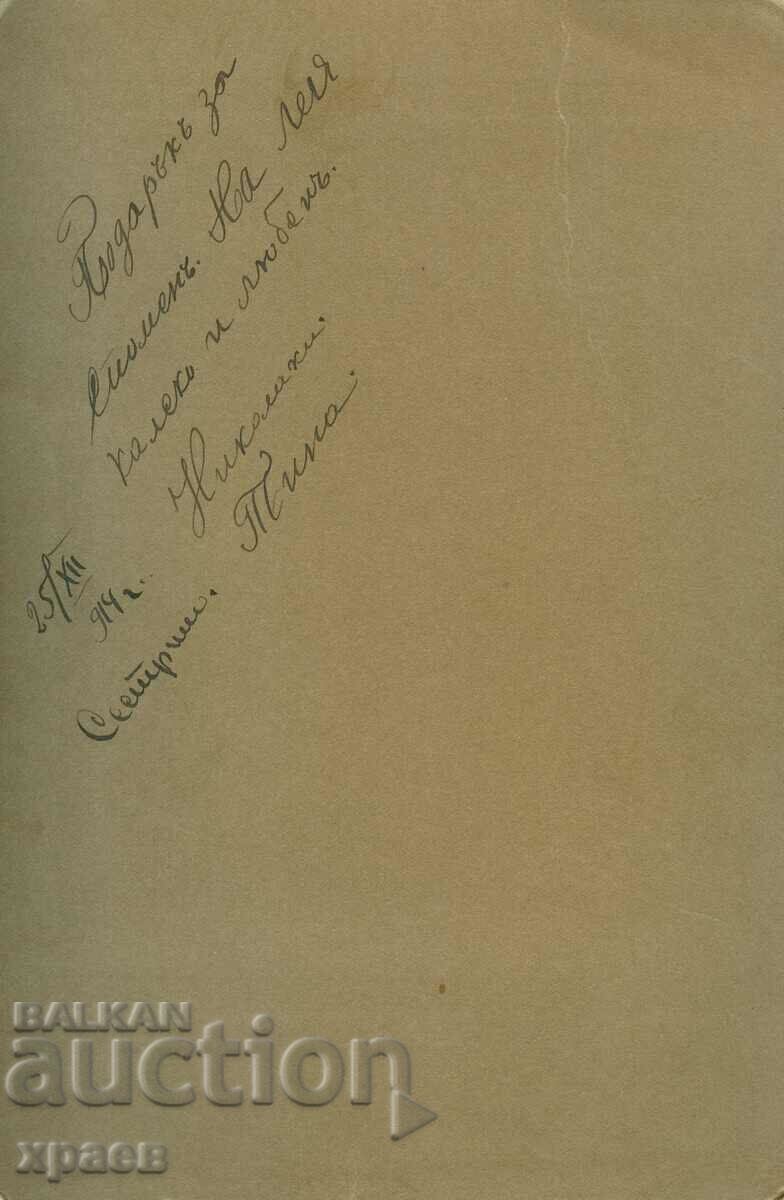 Подаръкъ за
споменъ. На леля
калеко и Любенъ.
Николаки.
Тина.
25/XII
914 г.
Сестрим.
BALKAN
auction
храев